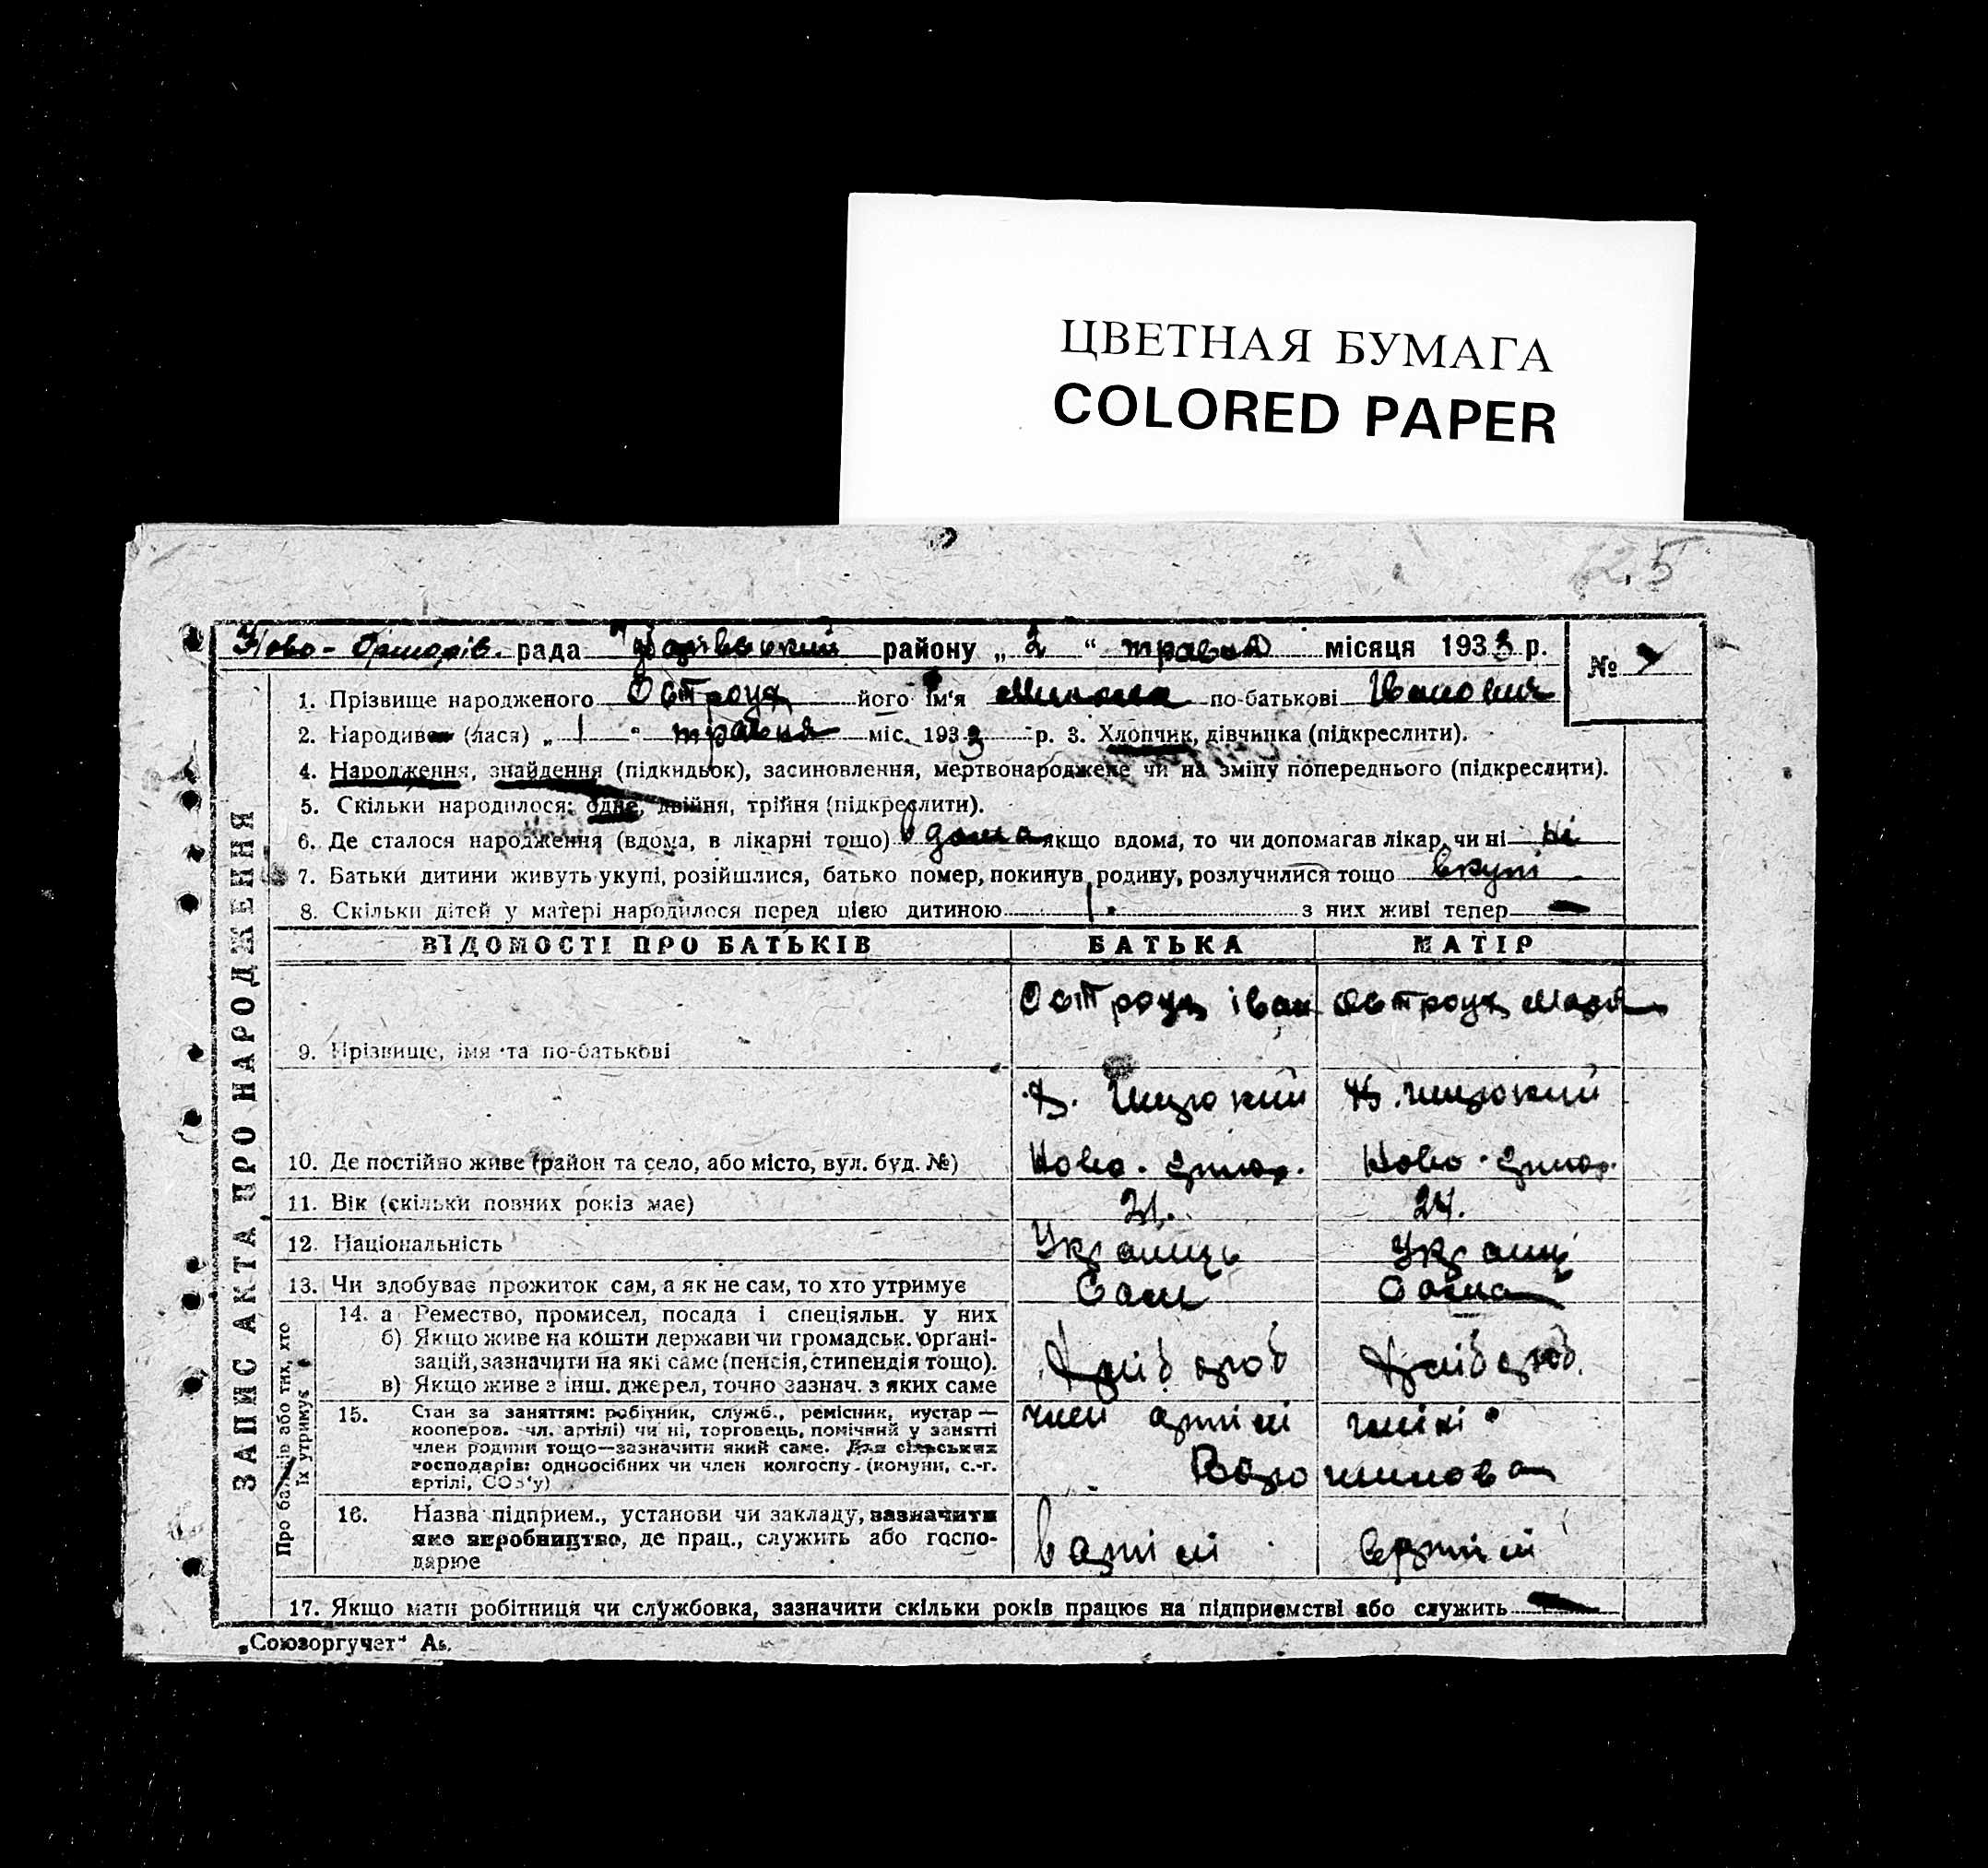 ЦВЕТНАЯ БУМАГА
COLORED PAPER
25
Ново- рада району „ 2 “ травня місяця 1933 р.
№
ЗАПИС АКТА ПРО НАРОДЖЕННЯ
1. Прізвище народженого Остроух його ім‘я Микола по-батькові Іванович
2. Народився (лася) „ 1 “ травня міс. 1933 р. 3. Хлопчик, дівчинка (підкреслити).
4. Народження, знайдення (підкидьок), засиновлення, мертвонароджене чи на зміну попереднього (підкреслити).
5. Скільки народилося: одне, двійня, трійня (підкреслити).
6. Де сталося народження (вдома, в лікарні тощо) вдома якщо вдома, то чи допомагав лікар, чи ні ні
7. Батьки дитини живуть укупі, розійшлися, батько помер, покинув родину, розлучилися тощо вкупі
8. Скільки дітей у матері народилося перед цією дитиною 1. з них живі тепер —
ВІДОМОСТІ ПРО БАТЬКІВ БАТЬКА МАТІР
9. Прізвище, імя та по-батькові Остроух Іван Остроух Марія
10. Де постійно живе (район та село, або місто, вул. буд. №) Ново. Ново.
11. Вік (скільки повних років має) 24.
12. Національність Украинць Украинц
13. Чи здобуває прожиток сам, а як не сам, то хто утримує Сам Сама
Про батьків або тих, хто їх утримує
14. а Ремество, промисел, посада і спеціяльн. у них
б) Якщо живе на кошти держави чи громадськ. органі-
зацій, зазначити на які саме (пенсія, стипендія тощо).
в) Якщо живе з інш. джерел, точно зазнач. з яких саме
Хліб ороб Хлібороб.
15. Стан за заняттям: робітник, служб., ремісник, кустар —
кооперов. чл. артілі) чи ні, торговець, помічний у занятті
член родини тощо—зазначити який саме. Для сільських
господарів: одноосібних чи член колгоспу (комуни, с.-г.
артілі, СОЗ‘у)
член артілі
Ворошилова
16. Назва підприєм., установи чи закладу, зазначити
яке виробництво, де прац., служить або госпо-
дарює
в артілі в артілі
17. Якщо мати робітниця чи службовка, зазначити скільки років працює на підприємстві або служить —
„Союзоргучет“